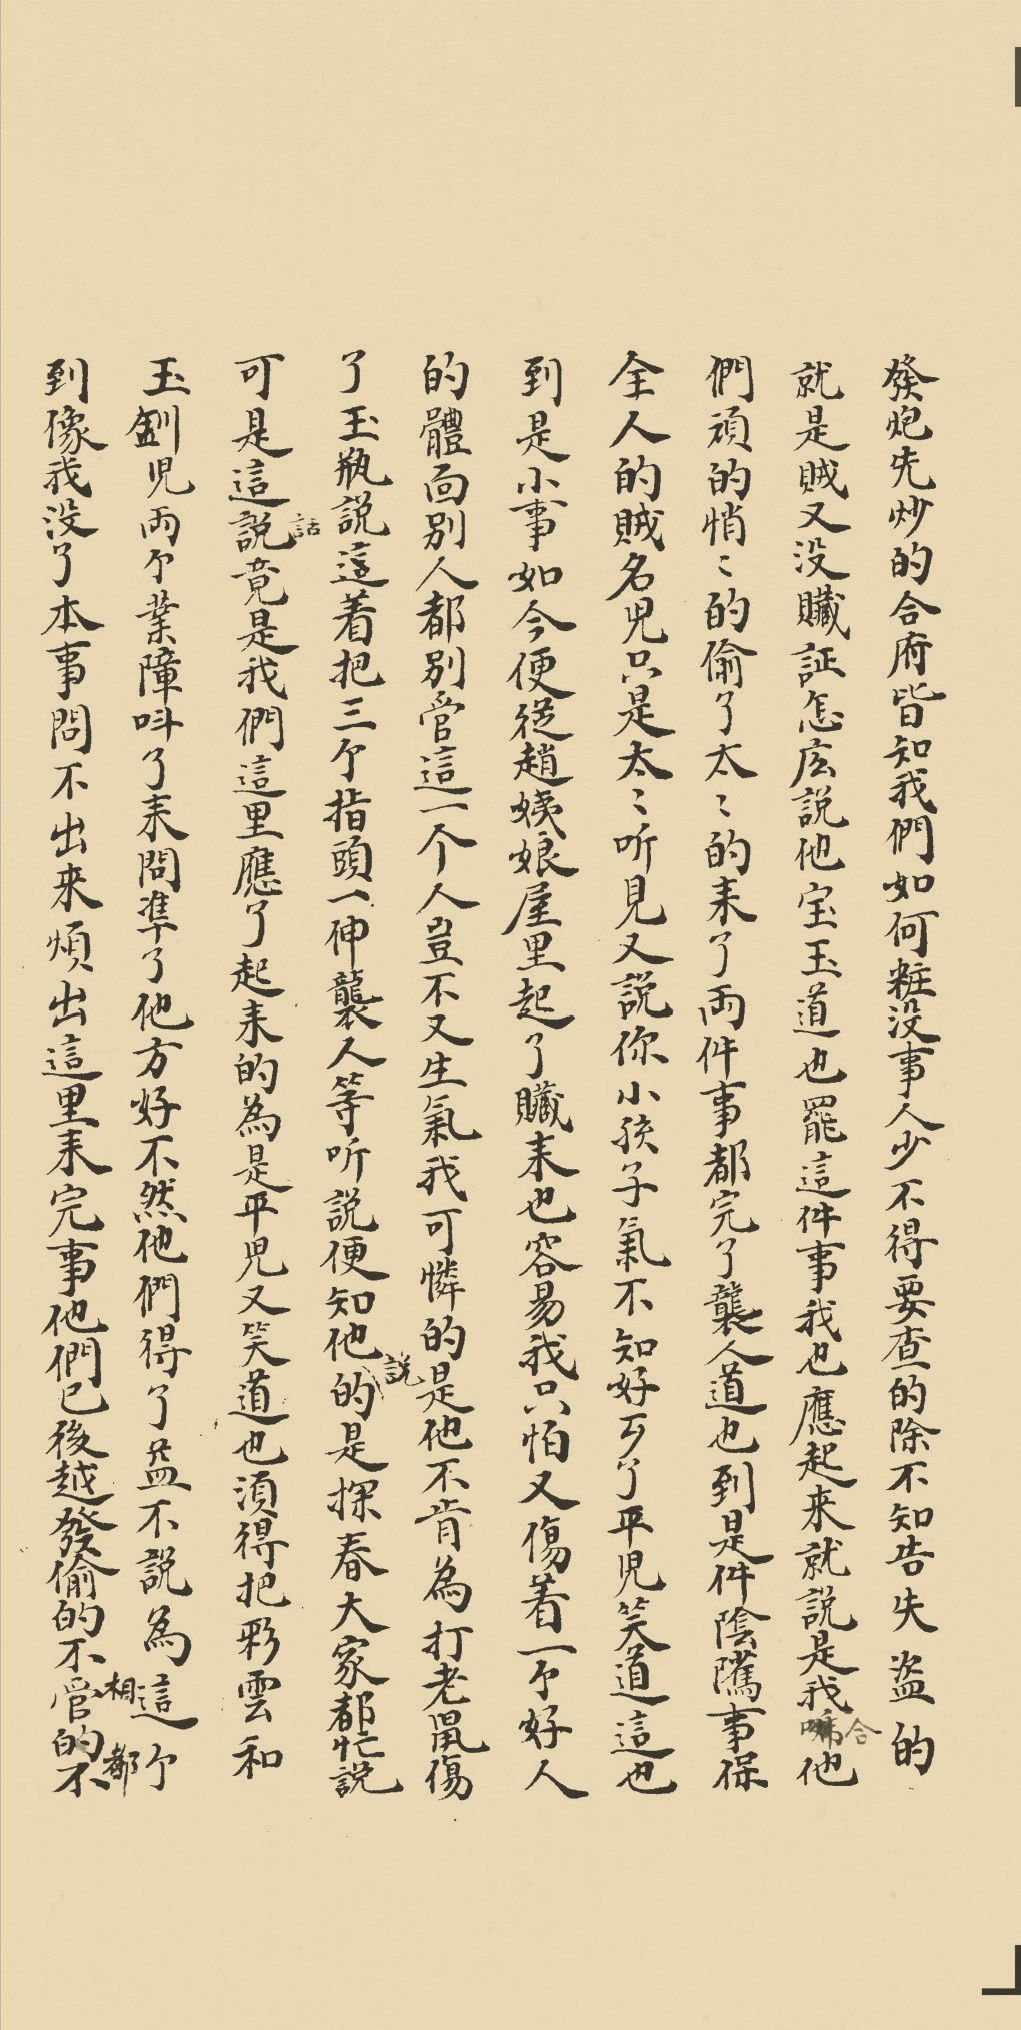 發炮先炒的合府皆知我們如何粧没事人少不得要查的除不知告失盗的
就是賊又没贜証怎庅説他宝玉道也罷這件事我也應起来就説是我嗎合他
們頑的悄〻的偷了太〻的来了両件事都完了襲人道也到是件陰隲事保
全人的賊名児只是太〻听見又説你小孩子氣不知好歹了平児笑道這也
到是小事如今便従趙姨娘屋里起了贜来也容易我只怕又傷着一个好人
的體面别人都别管這一个人豈不又生氣我可憐的是他不肯為打老鼠傷
了玉瓶説這着把三个指頭一伸襲人等听説便知他説的是探春大家都忙説
可是這説話竟是我們這里應了起来的為是平児又笑道也須得把彩雲和
玉釧児両个業障呌了来問凖了他方好不然他們得了益不説為這个
到像我没了本事問不出来煩出這里来完事他們已後越發偷的不管的不
相
都